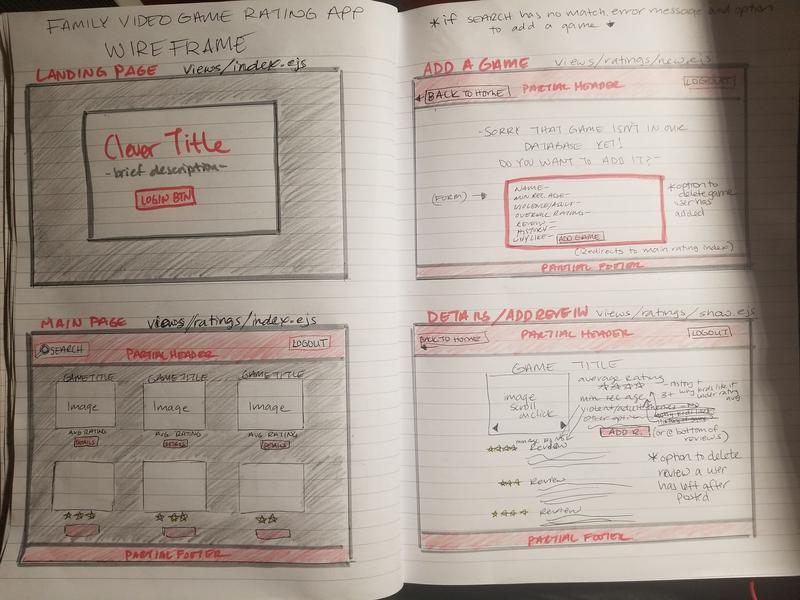 FAMILY VIDEO GAME RATING APP
WIREFRAME
LANDING PAGE views/index.ejs
Clever Title
-brief description-
LOGIN BTN
MAIN PAGE views/ratings/index.ejs
SEARCH
LOGOUT
PARTIAL HEADER
GAME TITLE GAME TITLE GAME TITLE
Image Image Image
AVG RATING AVG. RATING AVG. RATING
DETAILS DETAILS DETAILS
PARTIAL FOOTER
*if SEARCH has no match, error message and option
to add a game
ADD A GAME views/ratings/new.ejs
BACK TO HOME PARTIAL HEADER LOGOUT
-SORRY THAT GAME ISN'T IN OUR
DATABASE YET!
DO YOU WANT TO ADD IT?-
(FORM)
NAME-
MIN REC. AGE-
VIOLENCE/ADULT-
OVERALL RATING-
REVIEW-
WHY LIKE- ADD GAME
*option to
delete game
user has
added
(Redirects to main rating index)
PARTIAL FOOTER
DETAILS/ADD REVEIW views/ratings/show.ejs
BACK TO HOME PARTIAL HEADER LOGOUT
GAME TITLE
image
scroll
onclick
average rating
min rec age
violent/adult themes
other option
3+ why kids like it
under rating
avg
ADD R. (or @ bottom of
reviews)
Review
Review
Review
*option to delete
review a user
has left after
posted
PARTIAL FOOTER